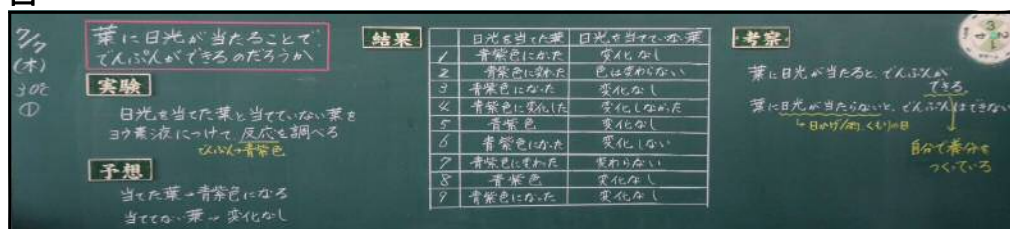 7/7
(木)
30℃
①
葉に日光が当たることで、
でんぷんができるのだろうか
実験
日光を当てた葉と当てていない葉を
ヨウ素液につけて、反応を調べる
でんぷん→青紫色
予想
当てた葉→青紫色になる
当ててない葉→変化なし
結果
日光を当てた葉 日光を当てていない葉
1 青紫色になった 変化なし
2 青紫色に変わった 色は変わらない
3 青紫色になった 変化なし
4 青紫色に変化した 変化しなかった
5 青紫色 変化なし
6 青紫色になった 変化しない
7 青紫色に変わった 変わらない
8 青紫色 変化なし
9 青紫色になった 変化なし
考察
葉に日光が当たると、でんぷんが
できる。
葉に日光が当たらないと、でんぷんはできない
自分で養分を
つくっている